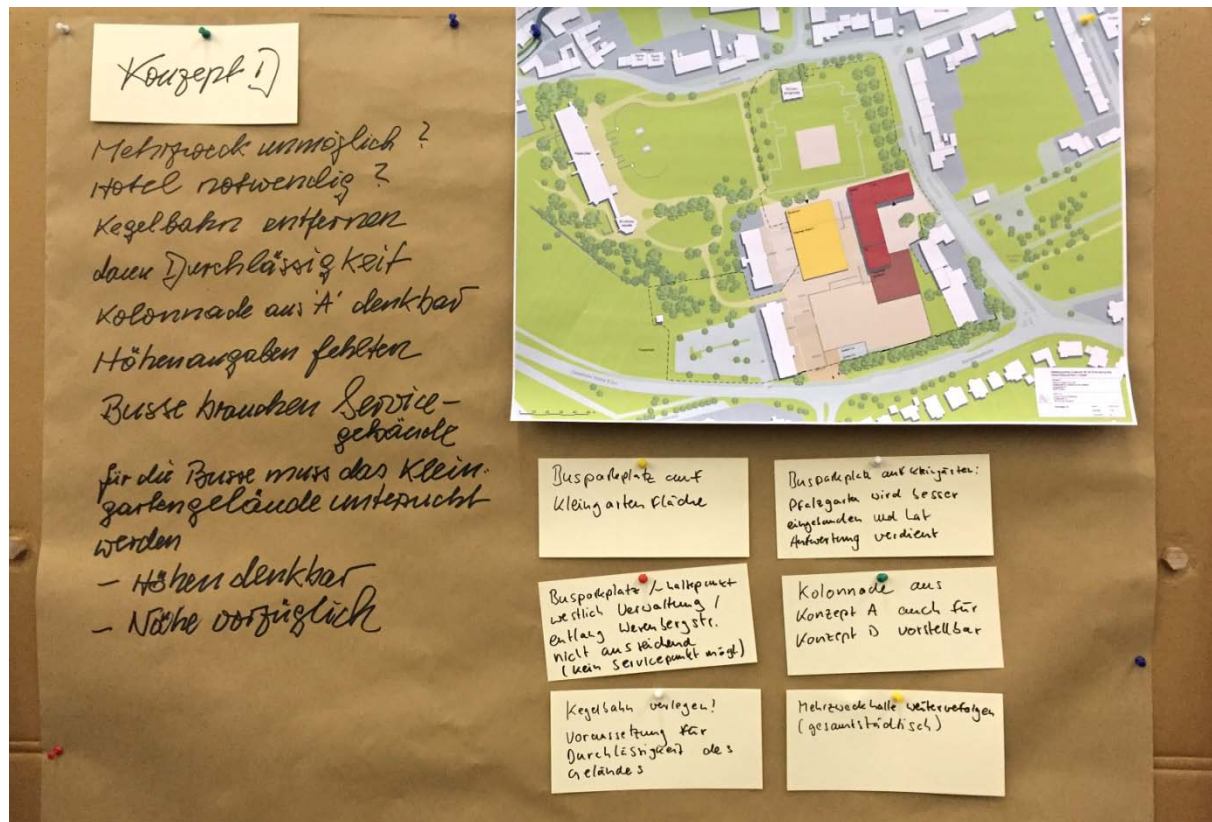 Konzept D
Mehrzweck unmöglich?
Hotel notwendig?
Kegelbahn entfernen
dann Durchlässigkeit
Kolonnade aus 'A' denkbar
Höhenangaben fehlten
Busse brauchen Service-
gebäude
für die Busse muss das Klein-
gartengelände untersucht
werden
- Höhen denkbar
- Nähe vorzüglich
Busparkplatz auf
Kleingarten Fläche
Busparkplatz auf Kleingärten:
Pfalzgarten wird besser
eingebunden und hat
Aufwertung verdient
Busparkplatz /-haltepunkt
westlich Verwaltung /
entlang Werenbergstr.
nicht ausreichend
(kein Servicepunkt mögl.)
Kolonnade aus
Konzept A auch für
Konzept D vorstellbar
Kegelbahn verlegen!
Voraussetzung für
Durchlässigkeit des
Geländes
Mehrzweckhalle weiterverfolgen
(gesamtstädtisch)